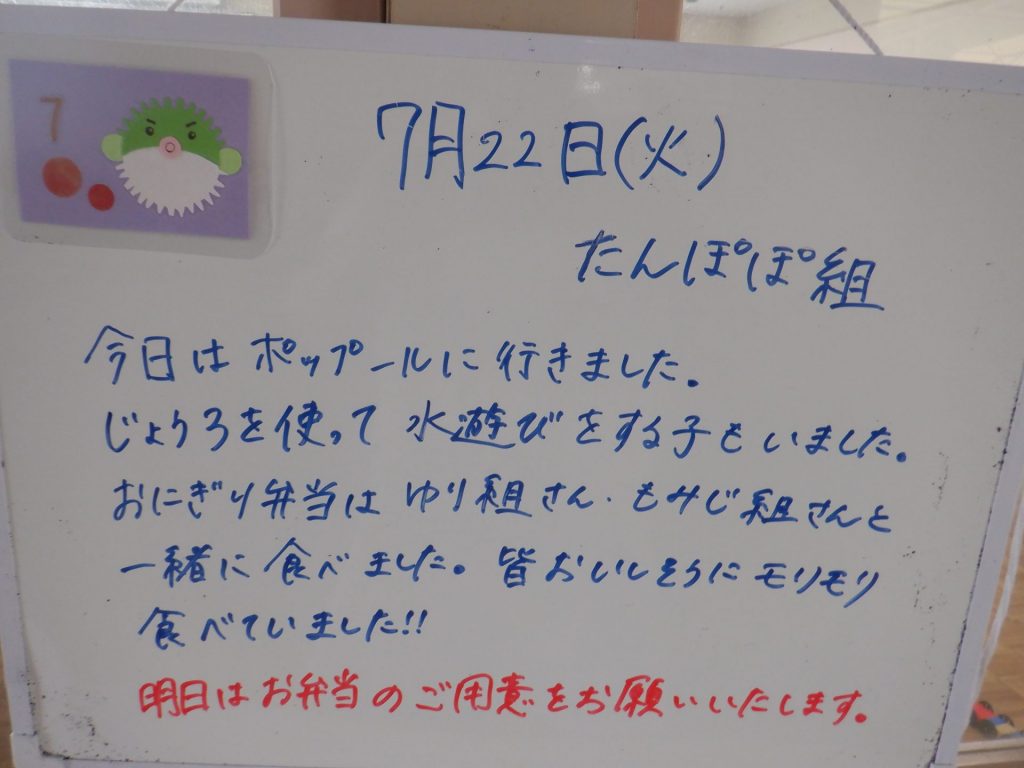 7
7月22日(火)
たんぽぽ組
今日はポップールに行きました。
じょうろを使って水遊びをする子もいました。
おにぎり弁当はゆり組さん・もみじ組さんと
一緒に食べました。皆おいしそうにモリモリ
食べていました!!
明日はお弁当のご用意をお願いいたします。